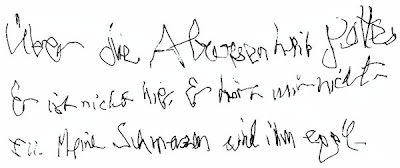 Über die Abwesenheit Gottes
Er ist nicht hier, Er hört mich nicht
Meine Schmerzen sind ihm egal